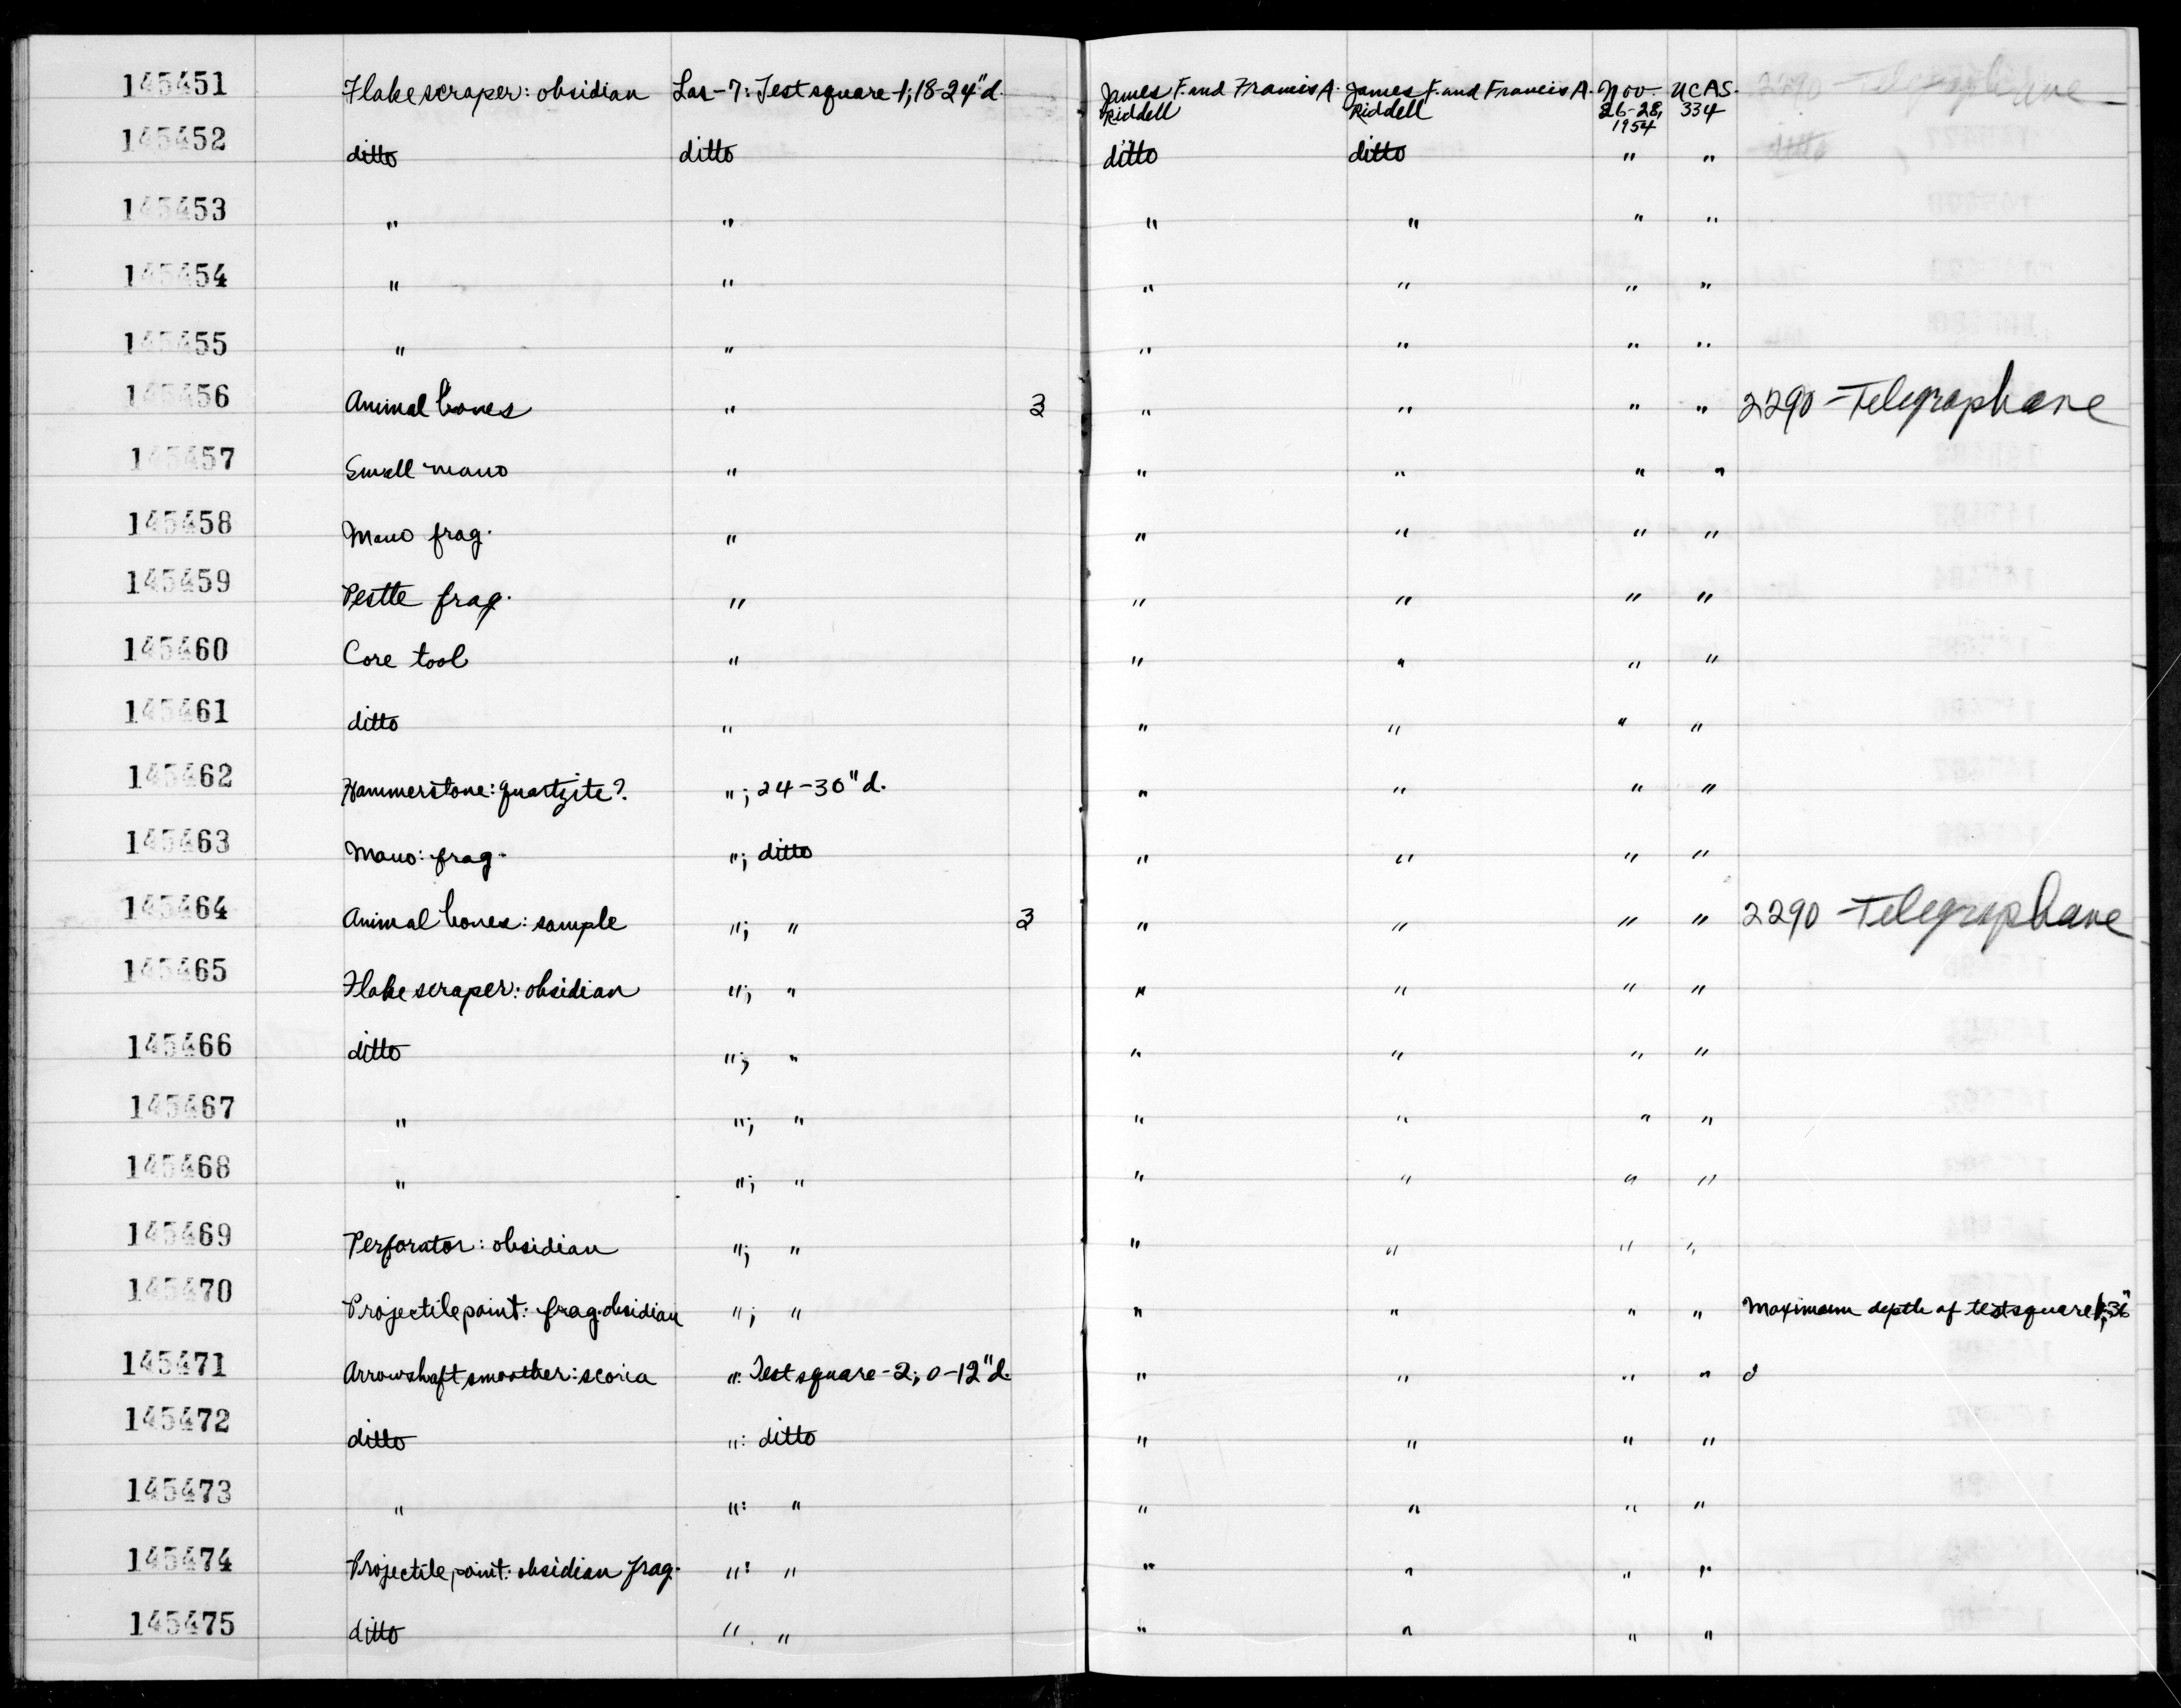 145451 Flake scraper: obsidian Las-7: Test square-1, 18-24"d. James F. and Francis A. Riddell James F. and Francis A. Riddell Nov. 26-28, 1954 UCAS. 334
145452 ditto ditto ditto ditto " "
145453 " " " " " "
145454 " " " " " "
145455 " " " " " "
145456 Animal bones " 3 " " " " 2290 - Telegraphane
145457 Small mano " " " " "
145458 Mano frag. " " " " "
145459 Pestle frag. " " " " "
145460 Core tool " " " " "
145461 ditto " " " " "
145462 Hammerstone: quartzite? "; 24-30"d. " " " "
145463 Mano: frag. "; ditto " " " "
145464 Animal bones: sample "; " 3 " " " " 2290 - Telegraphane
145465 Flake scraper: obsidian "; " " " " "
145466 ditto "; " " " " "
145467 " "; " " " " "
145468 " "; " " " " "
145469 Perforator: obsidian "; " " " " "
145470 Projectile point: frag. obsidian "; " " " " " Maximum depth of test square 1, 36"
145471 Arrowshaft smoother: scoria ": Test square-2; 0-12"d. " " " "
145472 ditto ": ditto " " " "
145473 " ": " " " " "
145474 Projectile point: obsidian frag. ": " " " " "
145475 ditto " " " " " "